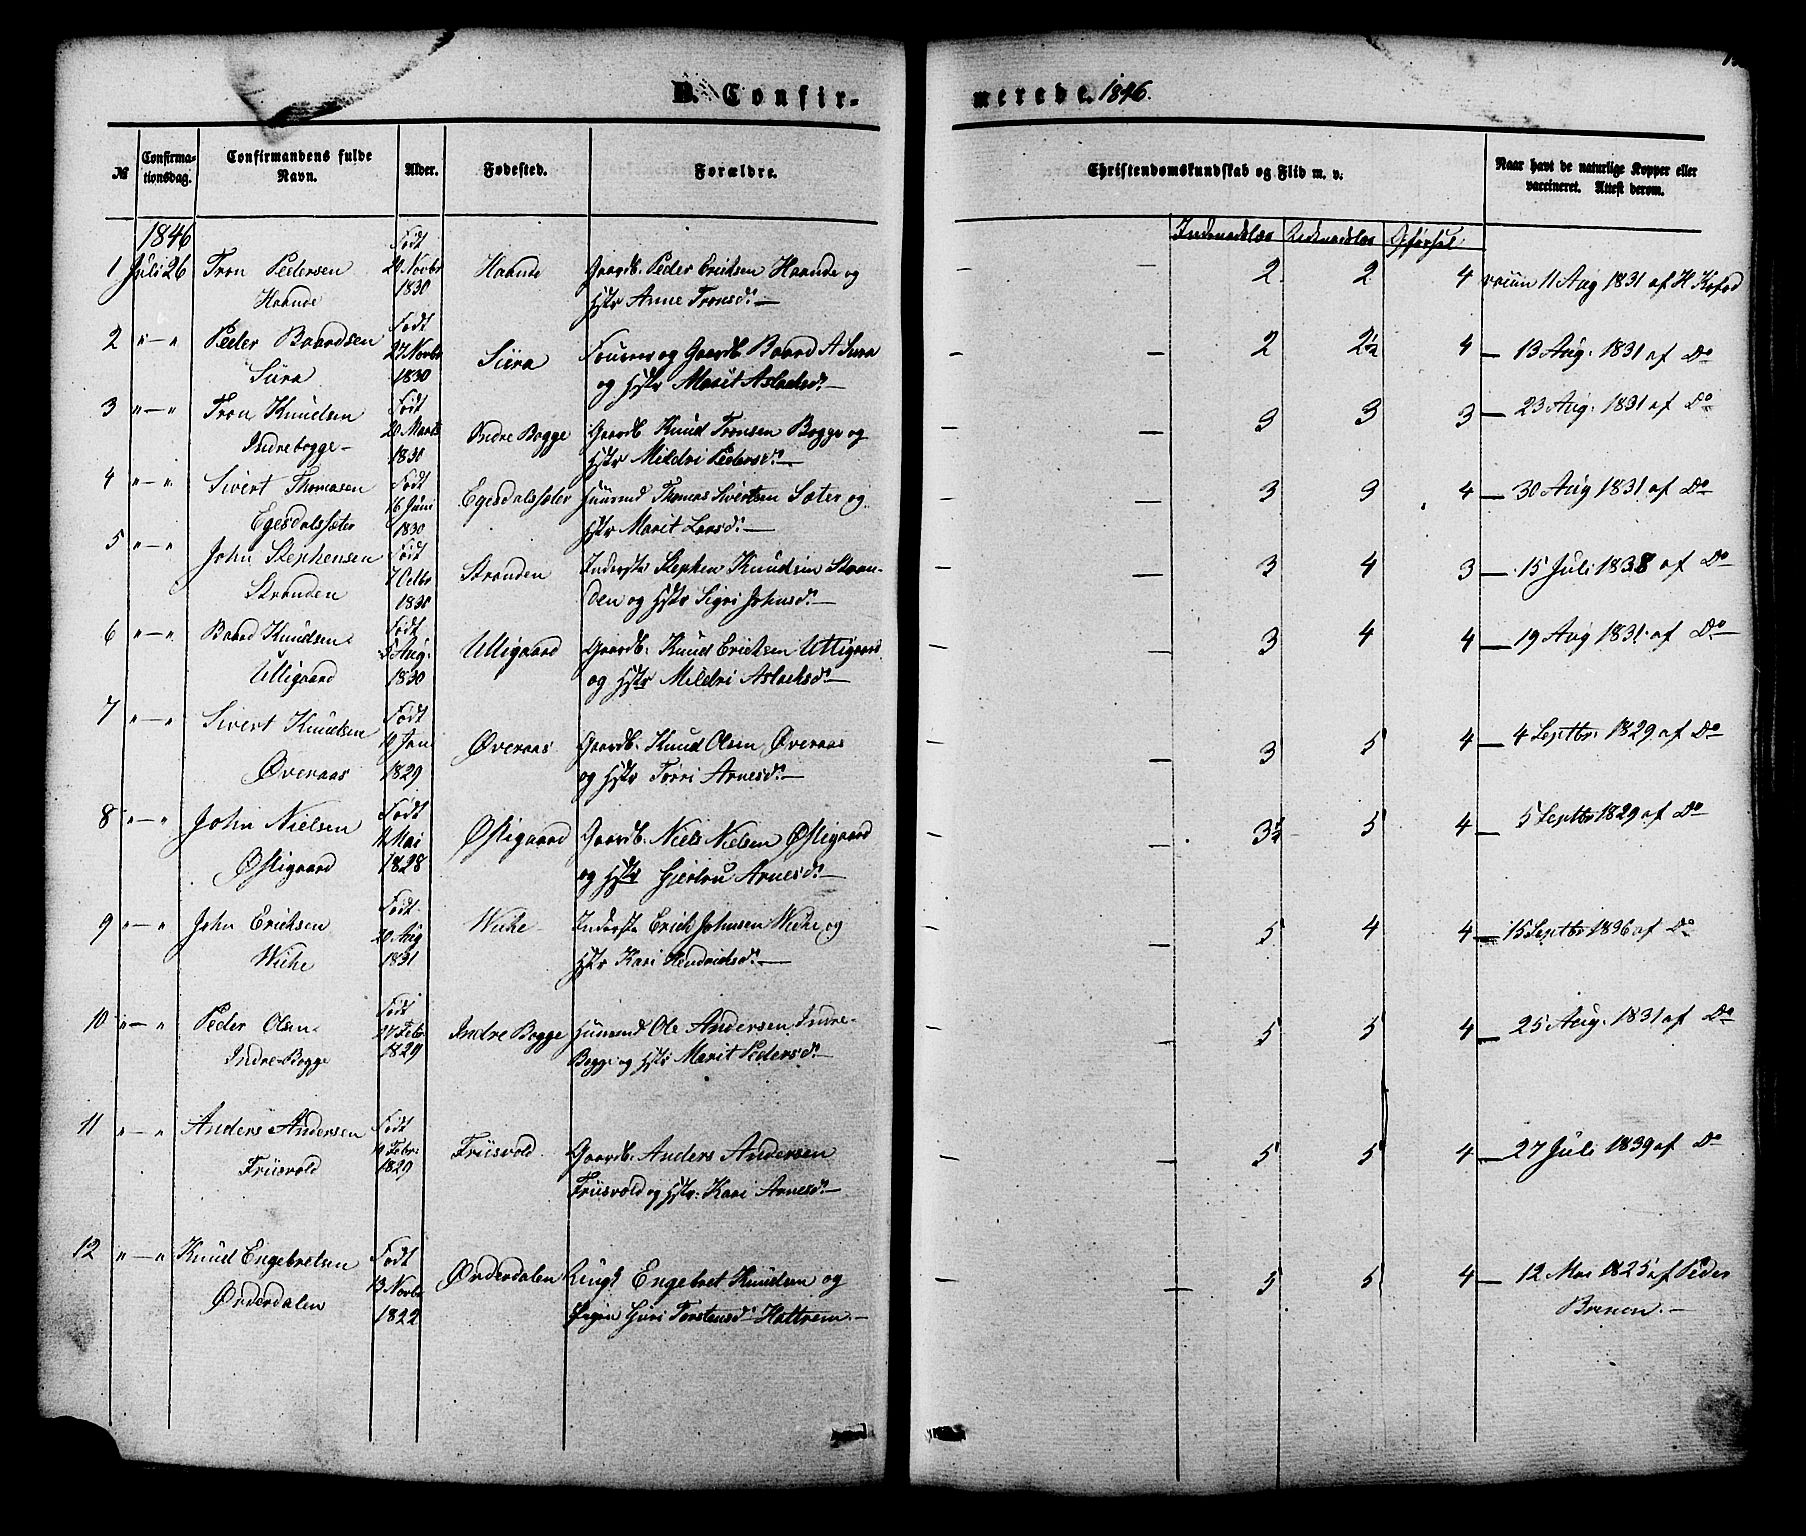 B. Confirmerede. 1846.
№ Confirmationsdag. Confirmandens fulde Navn. Alder. Fødested. Forældre. Christendomskundskab og Flid m. v. Naar havt de naturlige Kopper eller vaccineret. Attest derom.
1846 Født
1 Juli 26 Tron Pedersen 29 Novbr Haande Gaardb. Peder Erichsen Haande og 2 2 4 11 Aug 1831 af H Kofod
Haande 1830 Hstr Anne Tronsd. —
2 " — " Peder Baardsen Født 27 Novbr Siira og Gaardb Baard A Siira 2 2½ 4 — 13 Aug. 1831 af Do
Siira 1830 og Hstr Marit Aslachsd. —
3 " — " Tron Knudsen Født 20 Marts Indre Bogge Gaardb Knud Tronsen Bogge og 3 3 3 — 23 Aug. 1831 af Do
Indrebogge — 1830 Hstr Mildri Pedersd. —
4 " — " Sivert Thomasen Født 16 Juni Egesdalssæter Huusmd Thomas Sivertsen Sæter og 3 3 4 — 30 Aug 1831 af Do
Egesdalssæter 1830 Hstr Marit Larsd. —
5 " — " John Stephensen Født 7 Octbr Stranden Inderste Stephen Knudsen Stran- 3 4 3 — 15 Juli 1838 af Do
Stranden 1830 den og Hstr Sigri Johnsd. —
6 " — " Baard Knudsen Født Aug. Utigaard Gaardb. Knud Erichsen Utigaard 3 4 4 — 19 Aug 1831 af Do
Utigaard 1830 og Hstr Mildri Aslachsd. —
7 " — " Sivert Knudsen Født Jan. Øveraas Gaardb. Knud Olsen Øveraas 3 5 4 — 4 Septbr 1829 af Do
Øveraas 1829 og Hstr Torri Arnesd. —
8 " — " John Nielsen Født Mai Østigaard Gaardb. Niels Nielsen Østigaard 3½ 5 4 — 5 Septbr 1829 af Do
Østigaard 1828 og Hstr Gjertru Arnesd. —
9 " — " John Erichsen Født 20 Aug Wiihe Inderste Erich Johnsen Wiihe og 5 4 4 — 15 Septbr 1836 af Do
Wiihe 1831 Hstr Kari Hendrichsd. —
10 " — " Peder Olsen Født 27 Feb. Indre Bogge Huusmd Ole Andersen Indre- 5 5 4 — 25 Aug. 1831 af Do
Indre Bogge 1829 Bogge og Hstr Marit Pedersd. —
11 " — " Anders Andersen Født Febr. Friisvold Gaardb. Anders Andersen 5 5 4 — 27 Juli 1839 af Do
Friisvold 1829 Friisvold og Hstr. Kari Arnesd. —
12 " — " Knud Engebretsen Født 13 Novbr Ørderdalen Ungk Engebret Knudsen og 5 5 4 — 12 Mai 1825 af Peder
Ørderdalen 1822 Pigen Guri Torstensd Hattrem. — Brenon. —